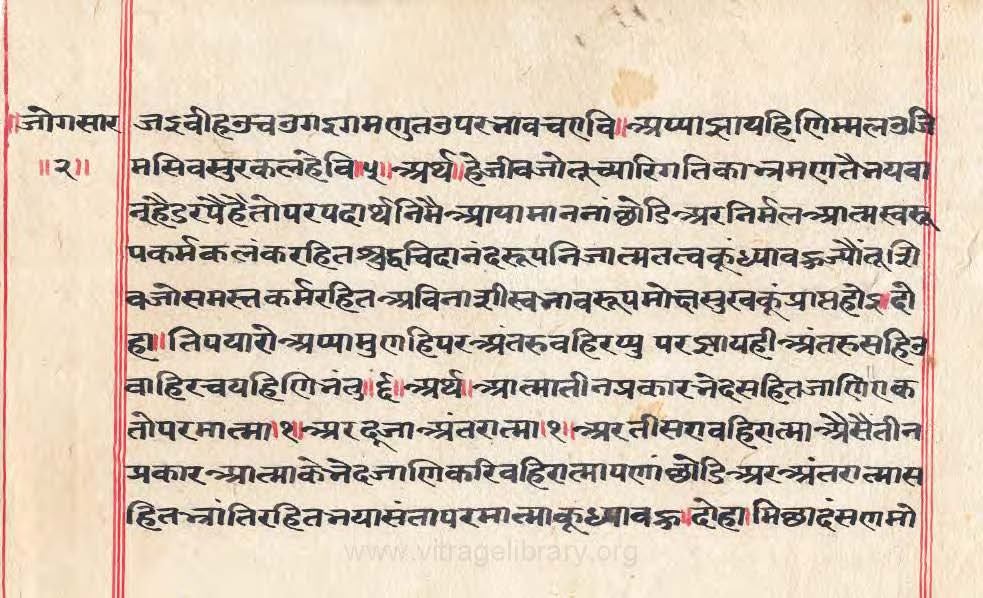 ॥जोगसार
॥२॥
जइवीहउचउगइगमणुतउपरभावचएवि॥अप्पाझायहिणिम्मलउजि
मसिवसुरकलहेवि॥५॥अर्थ॥हेजीवजोतूच्यारिगतिकाभ्रमणतैभयवा
नूहैडरपैहैतोपरपदार्थनिमैआपामाननांछोडिअरनिर्मलआत्मस्वरू
पकर्मकलंकरहितशुद्धचिदानंदरूपनिजात्मतत्वकूंध्यावहुज्यौंतूशि
वजोसमस्तकर्मरहितअविनाशीस्वभावरूपमोक्षसुखकूंप्राप्तहोइ॥दो
हा॥तिपयारोअप्पामुणहिपरअंतरुवहिरप्पु परझायहीअंतरुसहिउ
वाहिरचयहिणिभंतु॥६॥अर्थ॥आत्मातीनप्रकारभेदसहितजाणिएक
तोपरमात्मा।१।अरदूजाअंतरात्मा।१।अरतीसरावहिरात्माऐसैतीन
प्रकारआत्माकेभेदजाणिकरिवहिरात्मापणांछोडिअरअंतरात्मास
हितभ्रांतिरहितभयासंतापरमात्माकूध्यावहु॥दोहा॥मिछादंसणमो
www.vitragelibrary.org